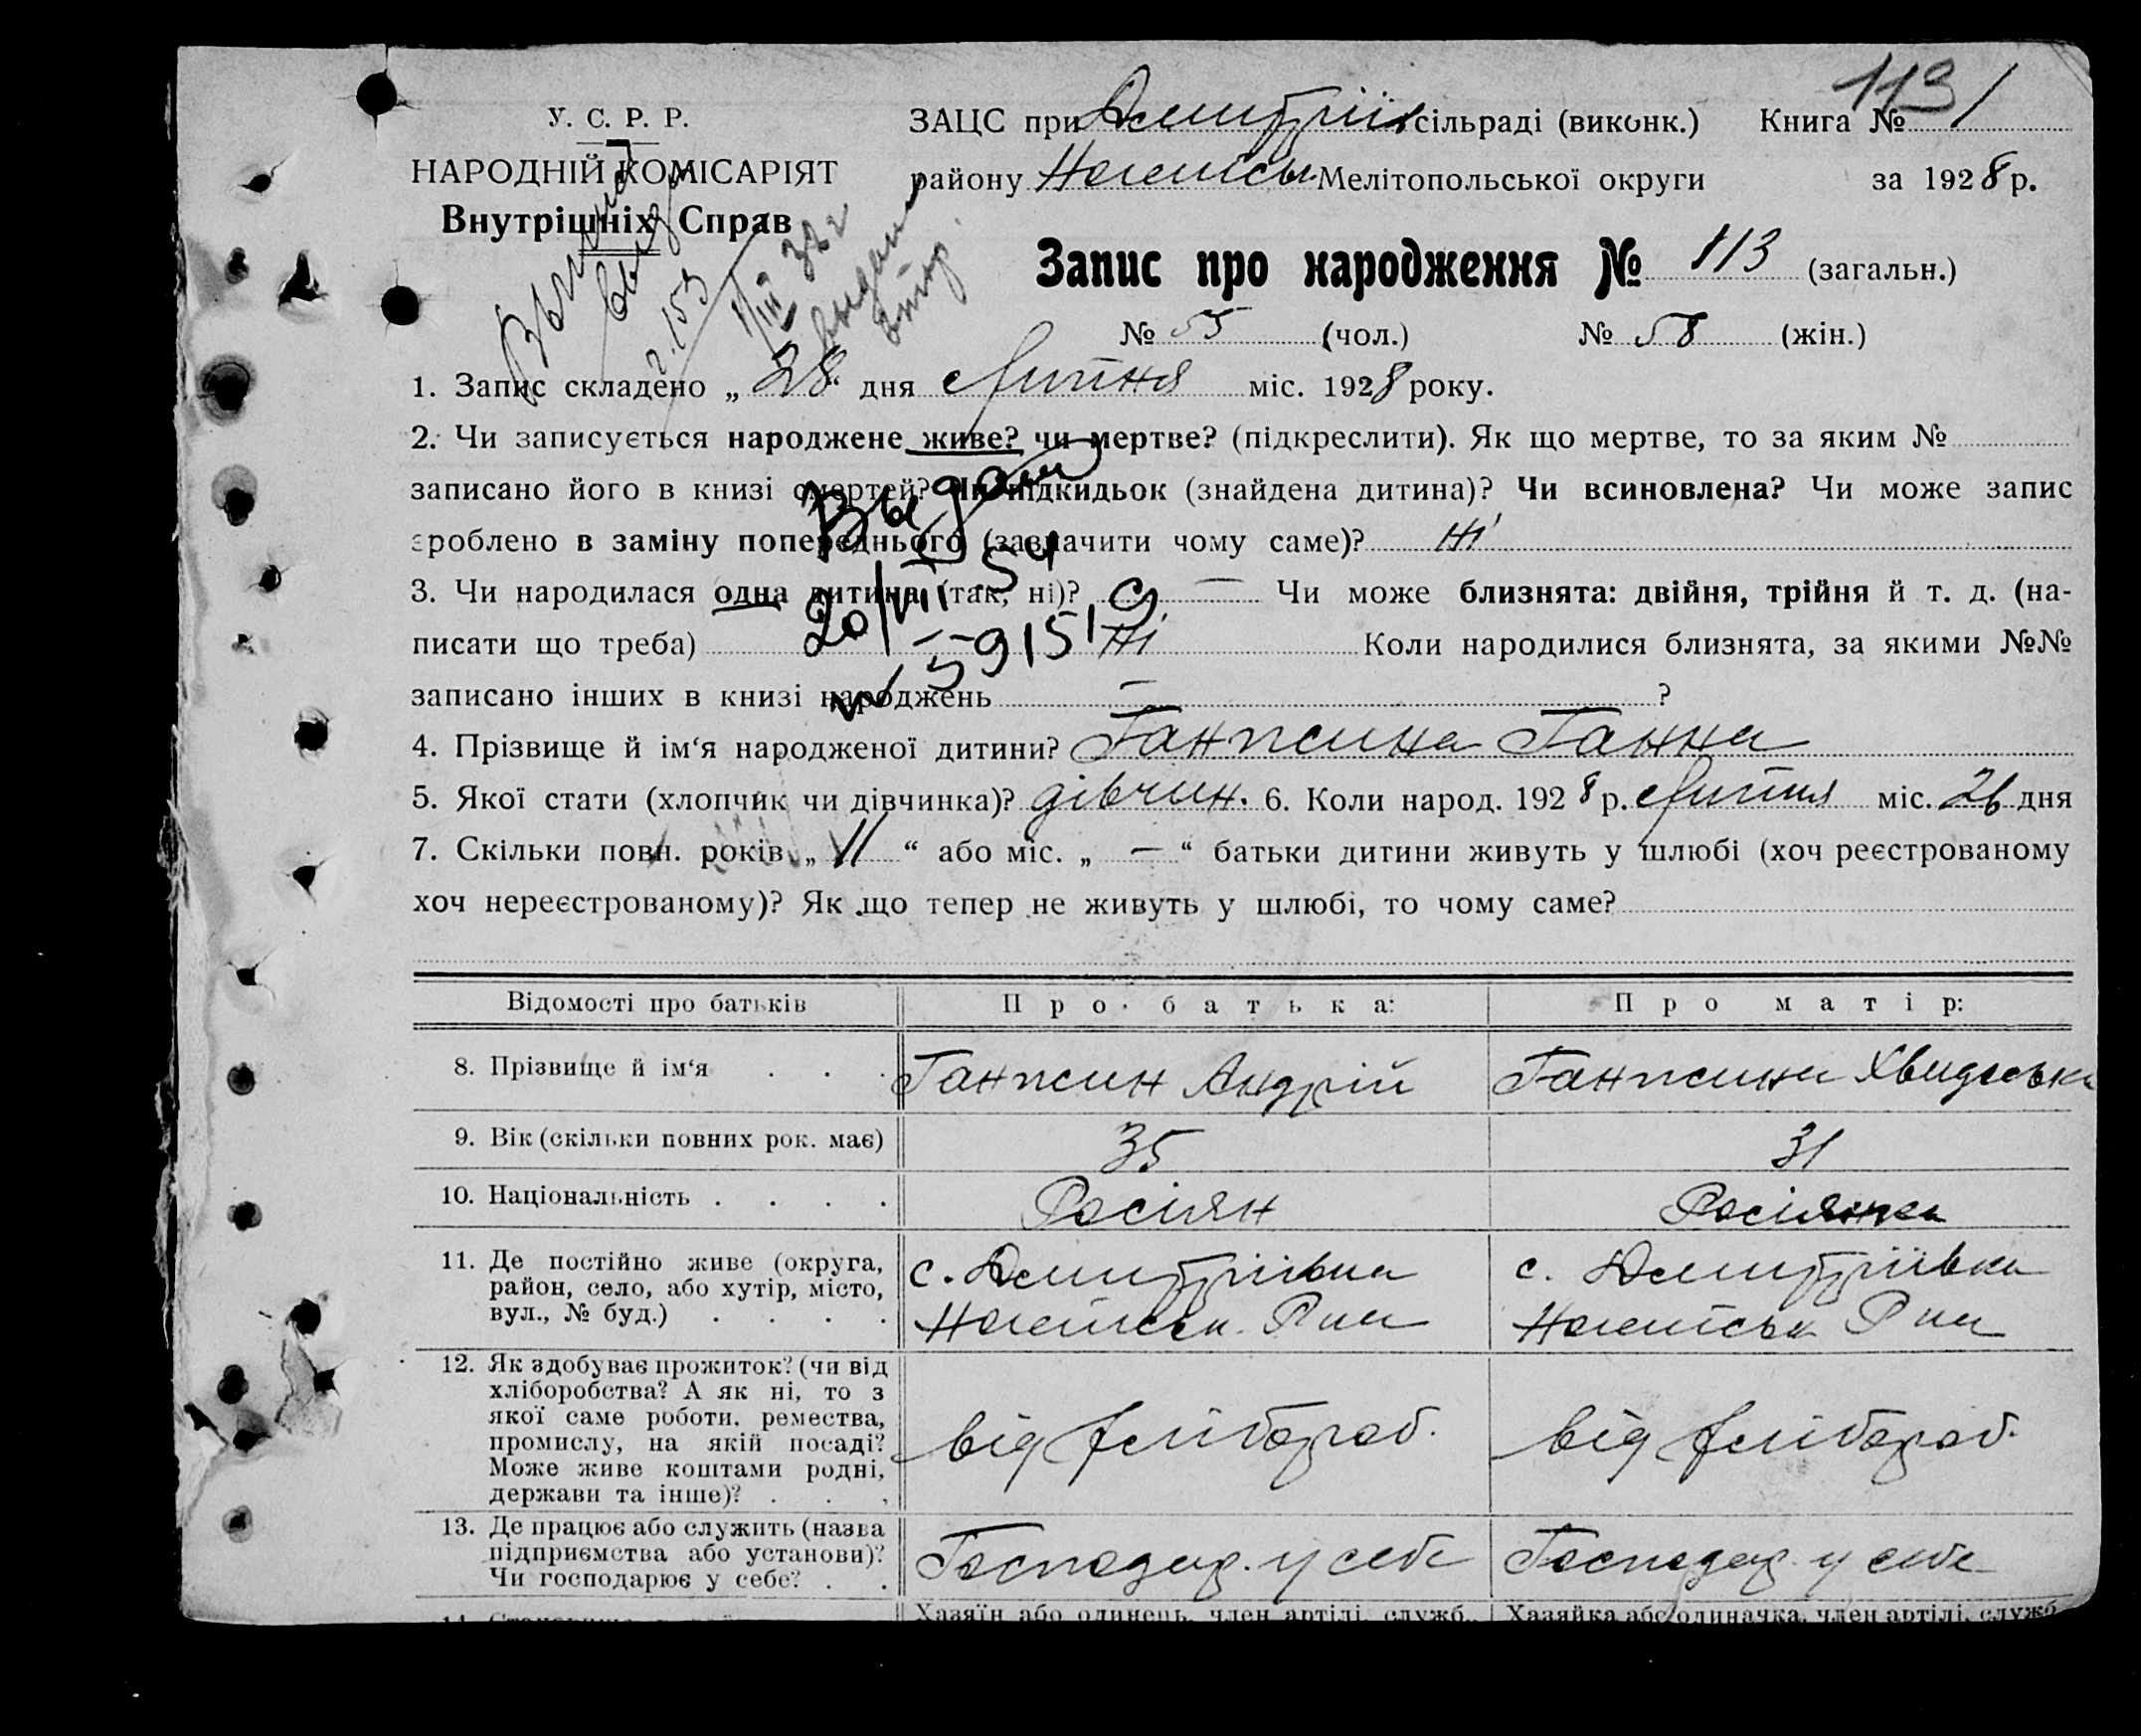 113
У. С. Р. Р.
НАРОДНІЙ КОМІСАРІЯТ
Внутрішніх Справ
ЗАЦС при Дмитрїїв сільраді (виконк.) Книга № 1
району Мелітопольської округи за 1928 р.
Запис про народження № 113 (загальн.)
№ 55 (чол.) № 58 (жін.)
1. Запис складено „28“ дня Липня міс. 1928 року.
2. Чи записується народжене живе? чи мертве? (підкреслити). Як що мертве, то за яким №
записано його в книзі смертей? Чи підкидьок (знайдена дитина)? Чи всиновлена? Чи може запис
зроблено в заміну попереднього (зазначити чому саме)? Ні
3. Чи народилася одна дитина (так, ні)? — Чи може близнята: двійня, трійня й т. д. (на-
писати що треба) Ні Коли народилися близнята, за якими №№
записано інших в книзі народжень — ?
4. Прізвище й ім‘я народженої дитини? Ганжина Ганна
5. Якої стати (хлопчик чи дівчинка)? дівчин. 6. Коли народ. 1928 р. Липня міс. 26 дня
7. Скільки повн. років „11“ або міс. „—“ батьки дитини живуть у шлюбі (хоч реєстрованому
хоч нереєстрованому)? Як що тепер не живуть у шлюбі, то чому саме?
Выдан
20/VII 54
Відомості про батьків Про батька: Про матір:
8. Прізвище й ім‘я . . . Ганжин Андрій Ганжина Хвидоська
9. Вік (скільки повних рок. має) 35 31
10. Національність . . . . Росіян Росіянка
11. Де постійно живе (округа,
район, село, або хутір, місто,
вул., № буд.) . . . .
с. Дмитріївка
Р на
с. Дмитріївка
Р на
12. Як здобуває прожиток? (чи від
хліборобства? А як ні, то з
якої саме роботи, ремества,
промислу, на якій посаді?
Може живе коштами родні,
держави та інше)? . . .
від хлібороб.
від хлібороб.
13. Де працює або служить (назва
підприємства або установи)?
Чи господарює у себе? . .
Господар. у себе
Господар. у себе
Хазяїн або одинець, член артілі, служб.. Хазяйка або одиначка, член артілі, служб